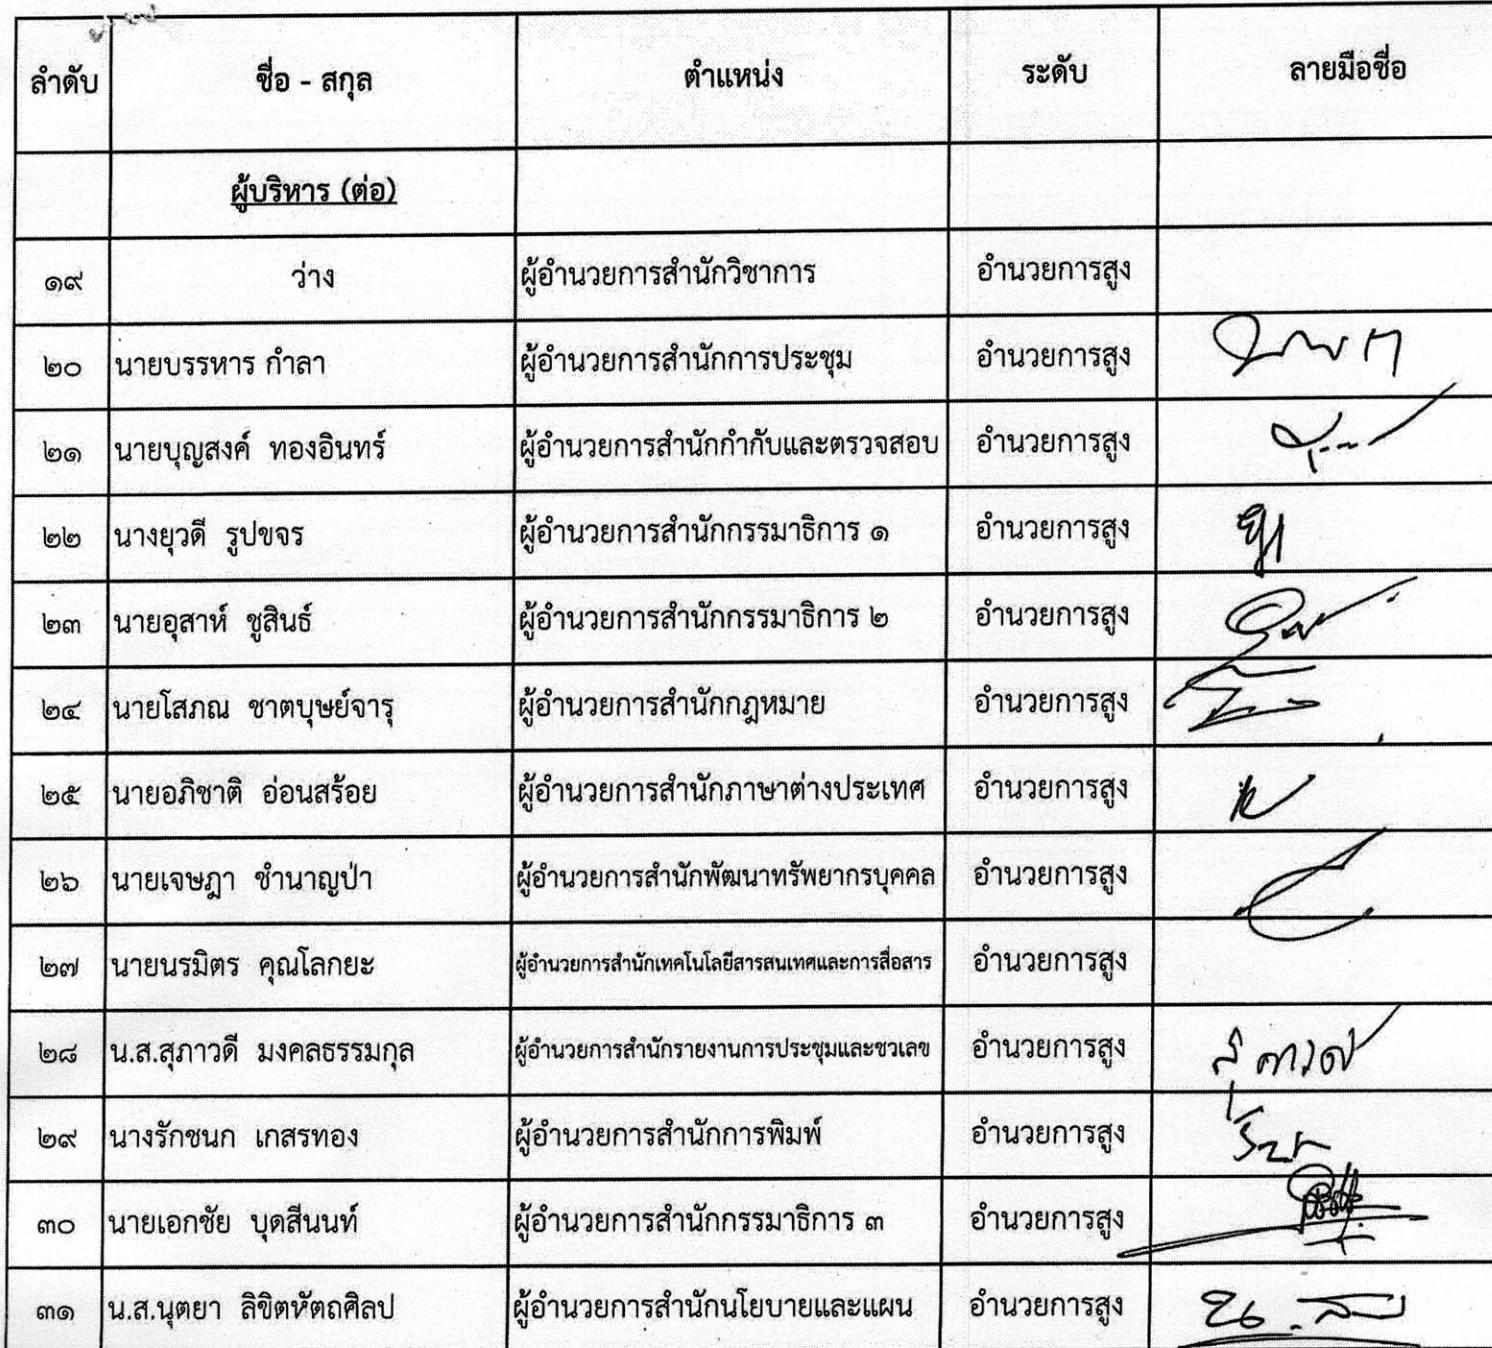 ลำดับ ชื่อ - สกุล ตำแหน่ง ระดับ ลายมือชื่อ
ผู้บริหาร (ต่อ)
๑๙ ว่าง ผู้อำนวยการสำนักวิชาการ อำนวยการสูง
๒๐ นายบรรหาร กำลา ผู้อำนวยการสำนักการประชุม อำนวยการสูง
๒๑ นายบุญสงค์ ทองอินทร์ ผู้อำนวยการสำนักกำกับและตรวจสอบ อำนวยการสูง
๒๒ นางยุวดี รูปขจร ผู้อำนวยการสำนักกรรมาธิการ ๑ อำนวยการสูง
๒๓ นายอุสาห์ ชูสินธ์ ผู้อำนวยการสำนักกรรมาธิการ ๒ อำนวยการสูง
๒๔ นายโสภณ ชาตบุษย์จารุ ผู้อำนวยการสำนักกฎหมาย อำนวยการสูง
๒๕ นายอภิชาติ อ่อนสร้อย ผู้อำนวยการสำนักภาษาต่างประเทศ อำนวยการสูง
๒๖ นายเจษฎา ชำนาญป่า ผู้อำนวยการสำนักพัฒนาทรัพยากรบุคคล อำนวยการสูง
๒๗ นายนรมิตร คุณโลกยะ ผู้อำนวยการสำนักเทคโนโลยีสารสนเทศและการสื่อสาร อำนวยการสูง
๒๘ น.ส.สุภาวดี มงคลธรรมกุล ผู้อำนวยการสำนักรายงานการประชุมและชวเลข อำนวยการสูง
๒๙ นางรักชนก เกสรทอง ผู้อำนวยการสำนักการพิมพ์ อำนวยการสูง
๓๐ นายเอกชัย บุดสีนนท์ ผู้อำนวยการสำนักกรรมาธิการ ๓ อำนวยการสูง
๓๑ น.ส.นุตยา ลิขิตหัตถศิลป ผู้อำนวยการสำนักนโยบายและแผน อำนวยการสูง